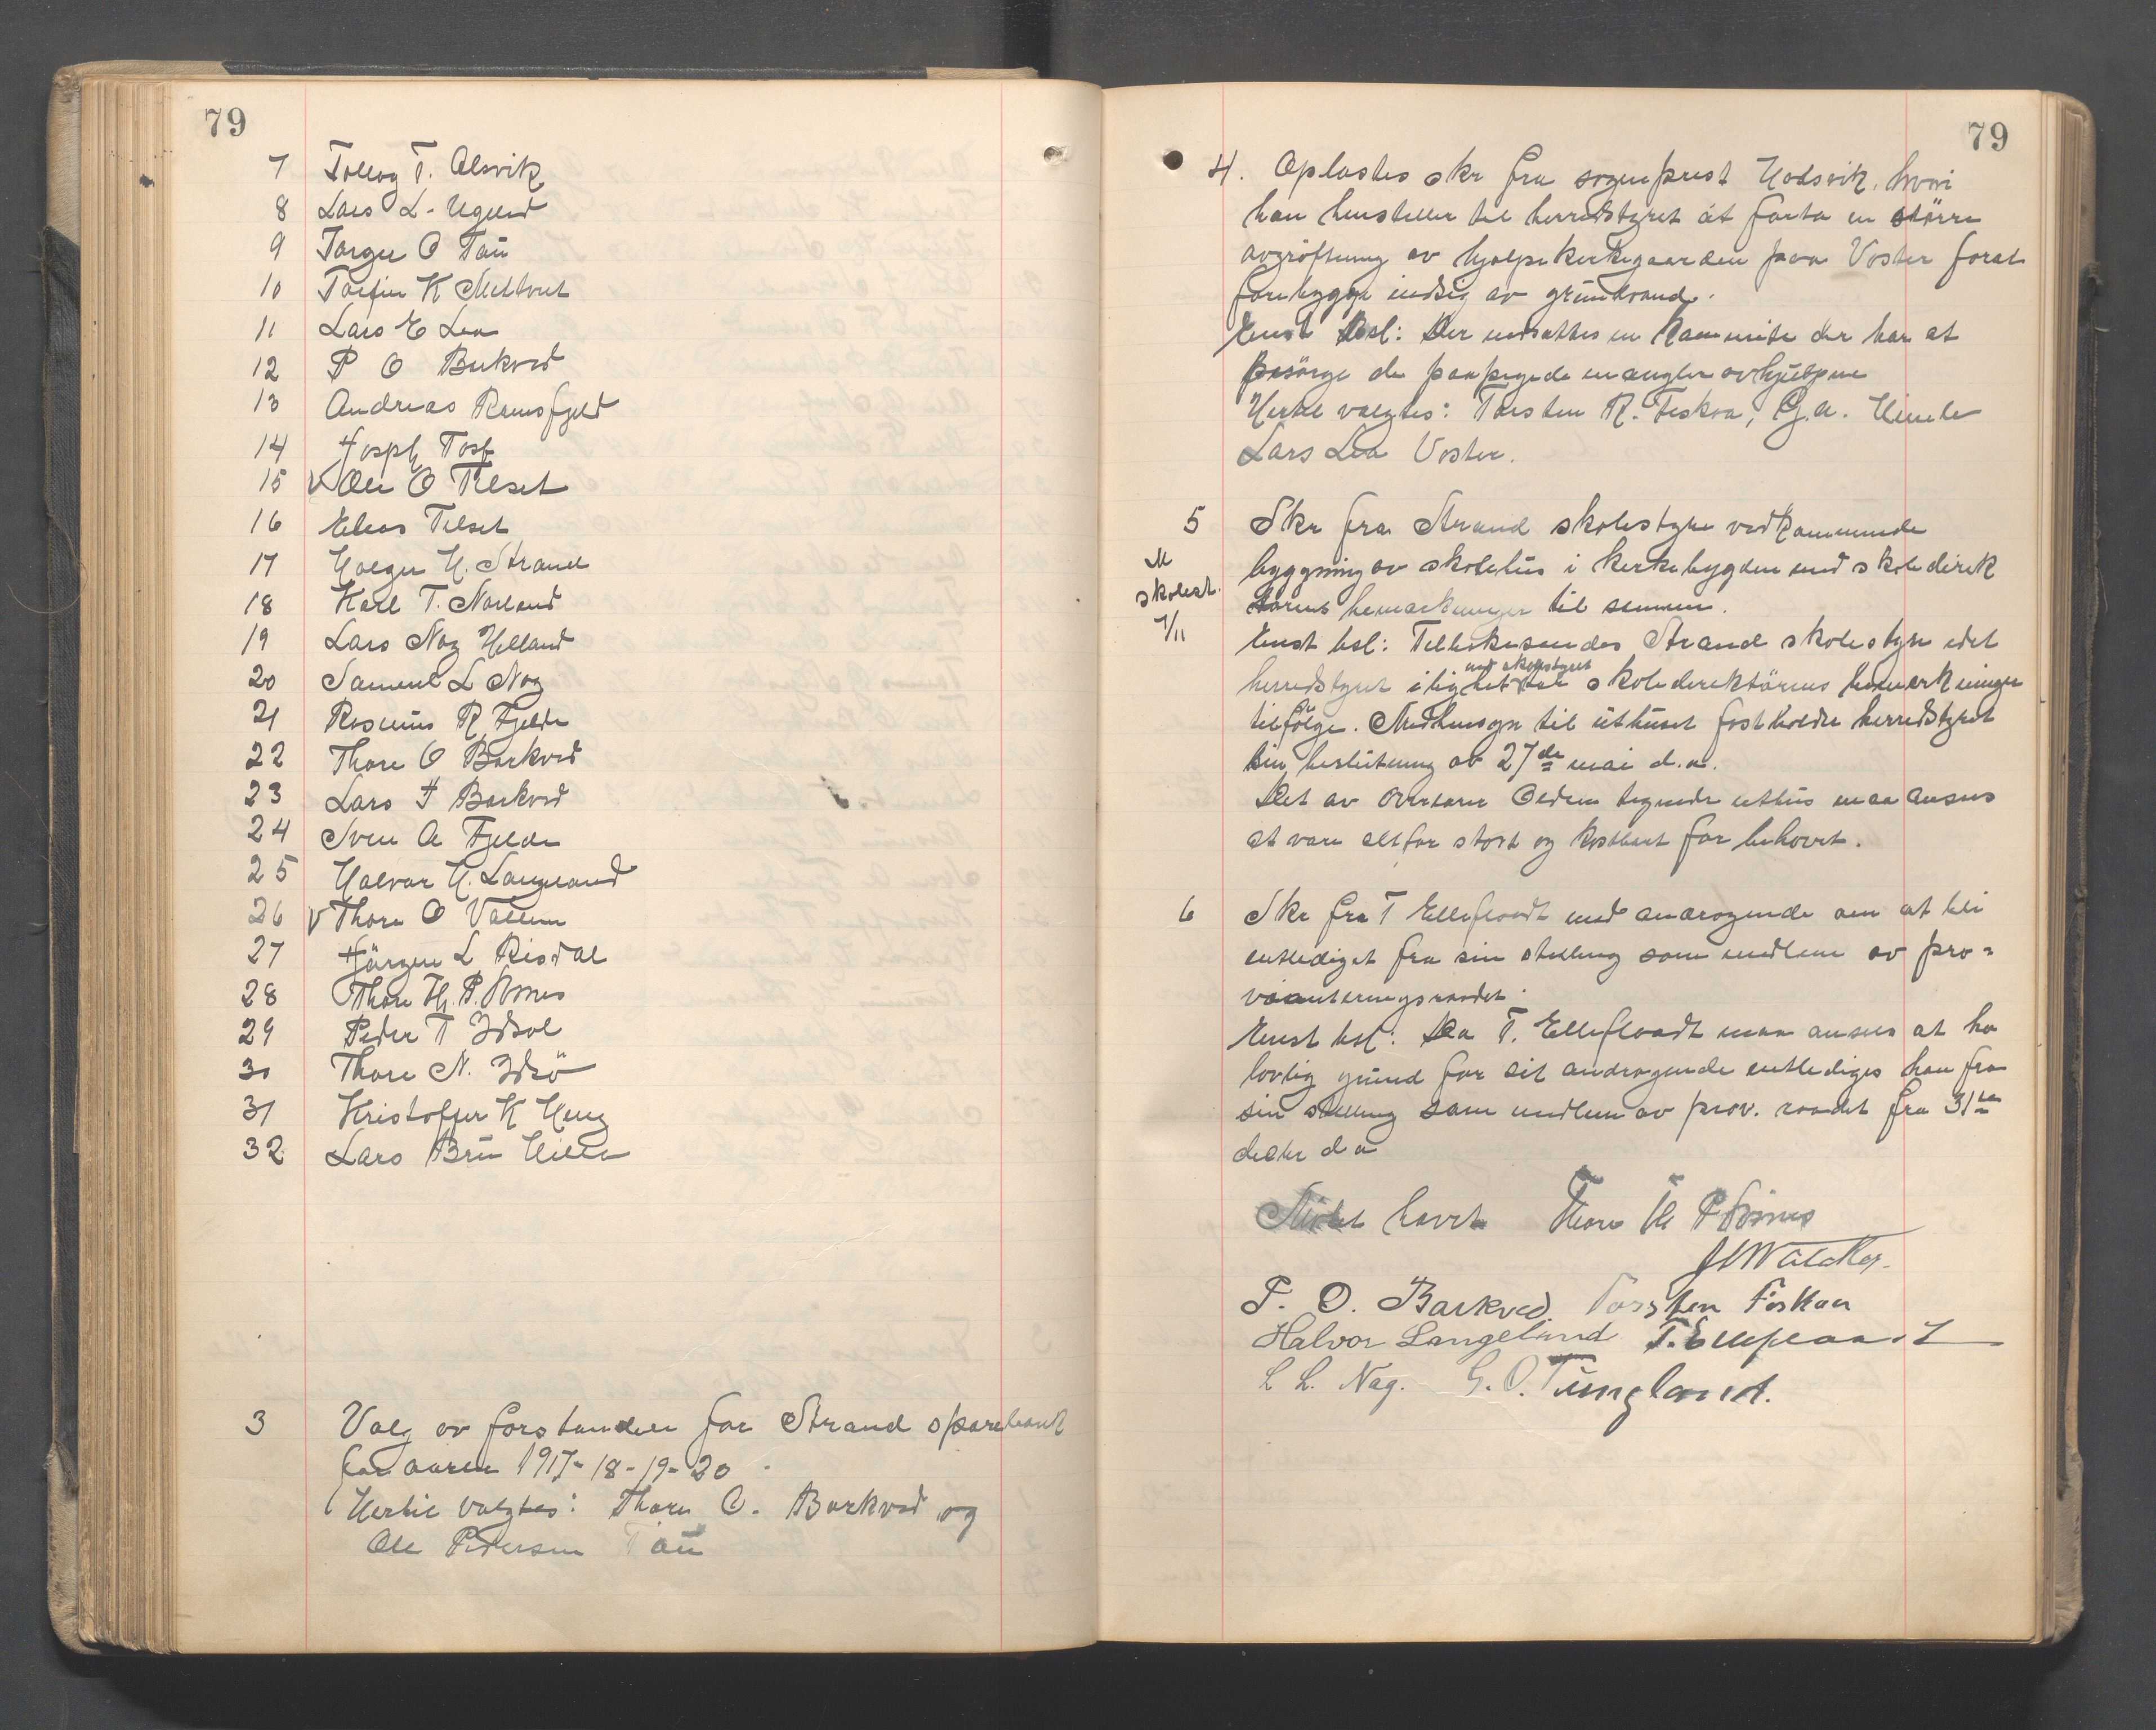 79
7 Tollag T. Alsvik
8 Lars L. Ugelid
9 Torger O Tau
10 Torfin K Meltveit
11 Lars E Lea
12 P O Barkved
13 Andreas Ramsfjeld
14 Joseph Tosf
15 V Ole O Tilset
16 Elias Tilset
17 Holger H. Strand
18 Karl T. Norland
19 Lars Nag Helland
20 Samuel L Nag
21 Rasmus R Fjelde
22 Thore O Barkved
23 Lars J Barkved
24 Sven A Fjelde
25 Halvor H. Langeland
26 V Thore O Vallem
27 Jörgen L Risdal
28 Thore Th. P. Semes
29 Peder T Idsal
30 Thore N. Idsö
31 Kristoffer K Heng
32 Lars Bru Hille
3 Valg av forstandere for Strand sparebank
for aarene 1917-18-19-20
Hertil valgtes: Thore O. Barkved og
Ole Pedersen Tau
79
4. Oplæstes skr fra sogneprest Hodsvik, hvori
han henstiller til herredstyret at foreta en större
avgröftning av hjælpekirkegaarden paa Voster forat
forebygge indsig av grundvand.
Enst Bsl: Der nedsattes en kommite der har at
besörge de paapegede mangler avhjulpne
Hertil valgtes: Torsten R. Fiskaa, G.A. Himle
Lars Lea Voster.
5 Skr fra Strand skolestyre vedkommende
M skolest. 7/11
bygning av skolehus i kirkebygden med skoledirek
törens bemerkninger til samme.
Enst bsl: Tilbakesendes Strand skolestyre idet
herredstyret i lighet med skolestyret tar skoledirektörens bemerkninger
tilfölge. Med hensyn til uthuset fastholder herredstyret
sin beslutning av 27de mai d.a.
Det av Overlærer Oedem tegnede uthus maa ansees
at være altfor stort og kostbart for behovet.
6 Skr fra T Elleflaadt med andragende om at bli
entlediget fra sin stilling som medlem av pro-
vianteringsraadet.
Enst bsl: Da T. Elleflaadt maa ansees at ha
lovlig grund for sit andragende entlediges han fra
sin stilling som medlem av prov. raadet fra 31te
decbr d a
Mötet hævet Thore Th P Semes
P. O. Barkved. Torsten Fiskaa
Halvor Langeland T. Elleflaadt
L L. Nag. G. O. Tungland.